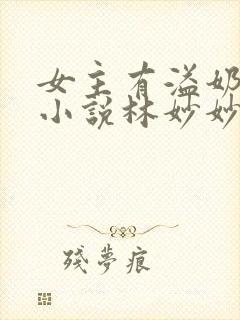 女主有溢奶
小說林妙妙
殘夢痕